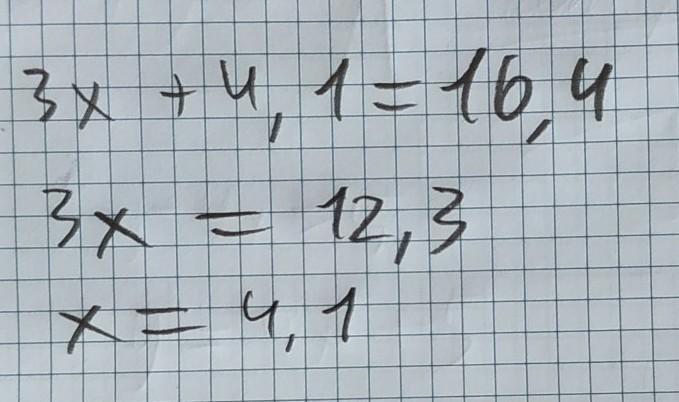 3x + 4,1 = 16,4
3x = 12,3
x = 4,1